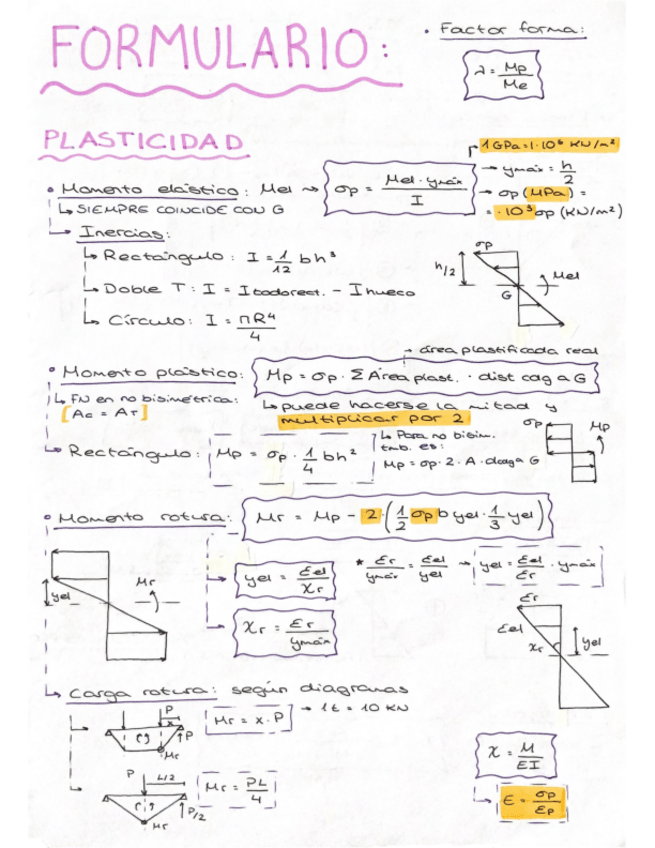 FORMULARIO:
• Factor forma:
λ = Mp / Me
PLASTICIDAD
1 GPa = 1·10⁶ KN/m²
• Momento elástico: Mel → σp = Mel · ymáx / I
→ ymáx = h/2
→ σp (MPa) =
= ·10³ σp (KN/m²)
↳ SIEMPRE COINCIDE CON G
↳ Inercias:
↳ Rectángulo: I = 1/12 bh³
↳ Doble T: I = Itodorect. - Ihueco
↳ Círculo: I = πR⁴/4
σp
h/2
Mel
G
→ área plastificada real
• Momento plástico: Mp = σp · Σ Área plast. · dist cdg a G
↳ FN en no bisimétrica:
[Ac = AT]
↳ puede hacerse la mitad y
multiplicar por 2
↳ Rectángulo: Mp = σp · 1/4 bh²
↳ Para no bisim.
tmb. es:
Mp = σp · 2 · A · dcdg a G
σp
Mp
• Momento rotura: Mr = Mp - 2 · (1/2 σp b yel · 1/3 yel)
yel = εel / χr
* εr / ymáx = εel / yel → yel = εel / εr · ymáx
χr = εr / ymáx
yel
Mr
εr
εel
χr
yel
↳ Carga rotura: según diagramas
P
x
P
Mr
Mr = x · P
→ 1t = 10 KN
P
L/2
P/2
Mr
Mr = PL/4
χ = M / EI
E = σp / εp